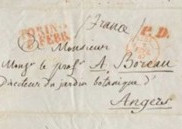 (France)
TORINO
FEBB.
P.D.
Monsieur
Mons.r le prof.r A. Boreau
Directeur du jardin botanique
Angers